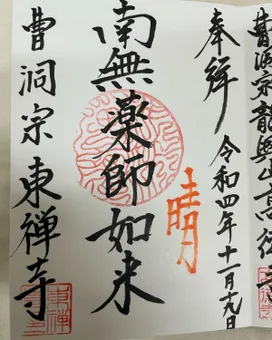 曹洞宗龍興山高徳寺
奉拝
令和四年十一月十九日
晴
南無薬師如来
曹洞宗東禅寺